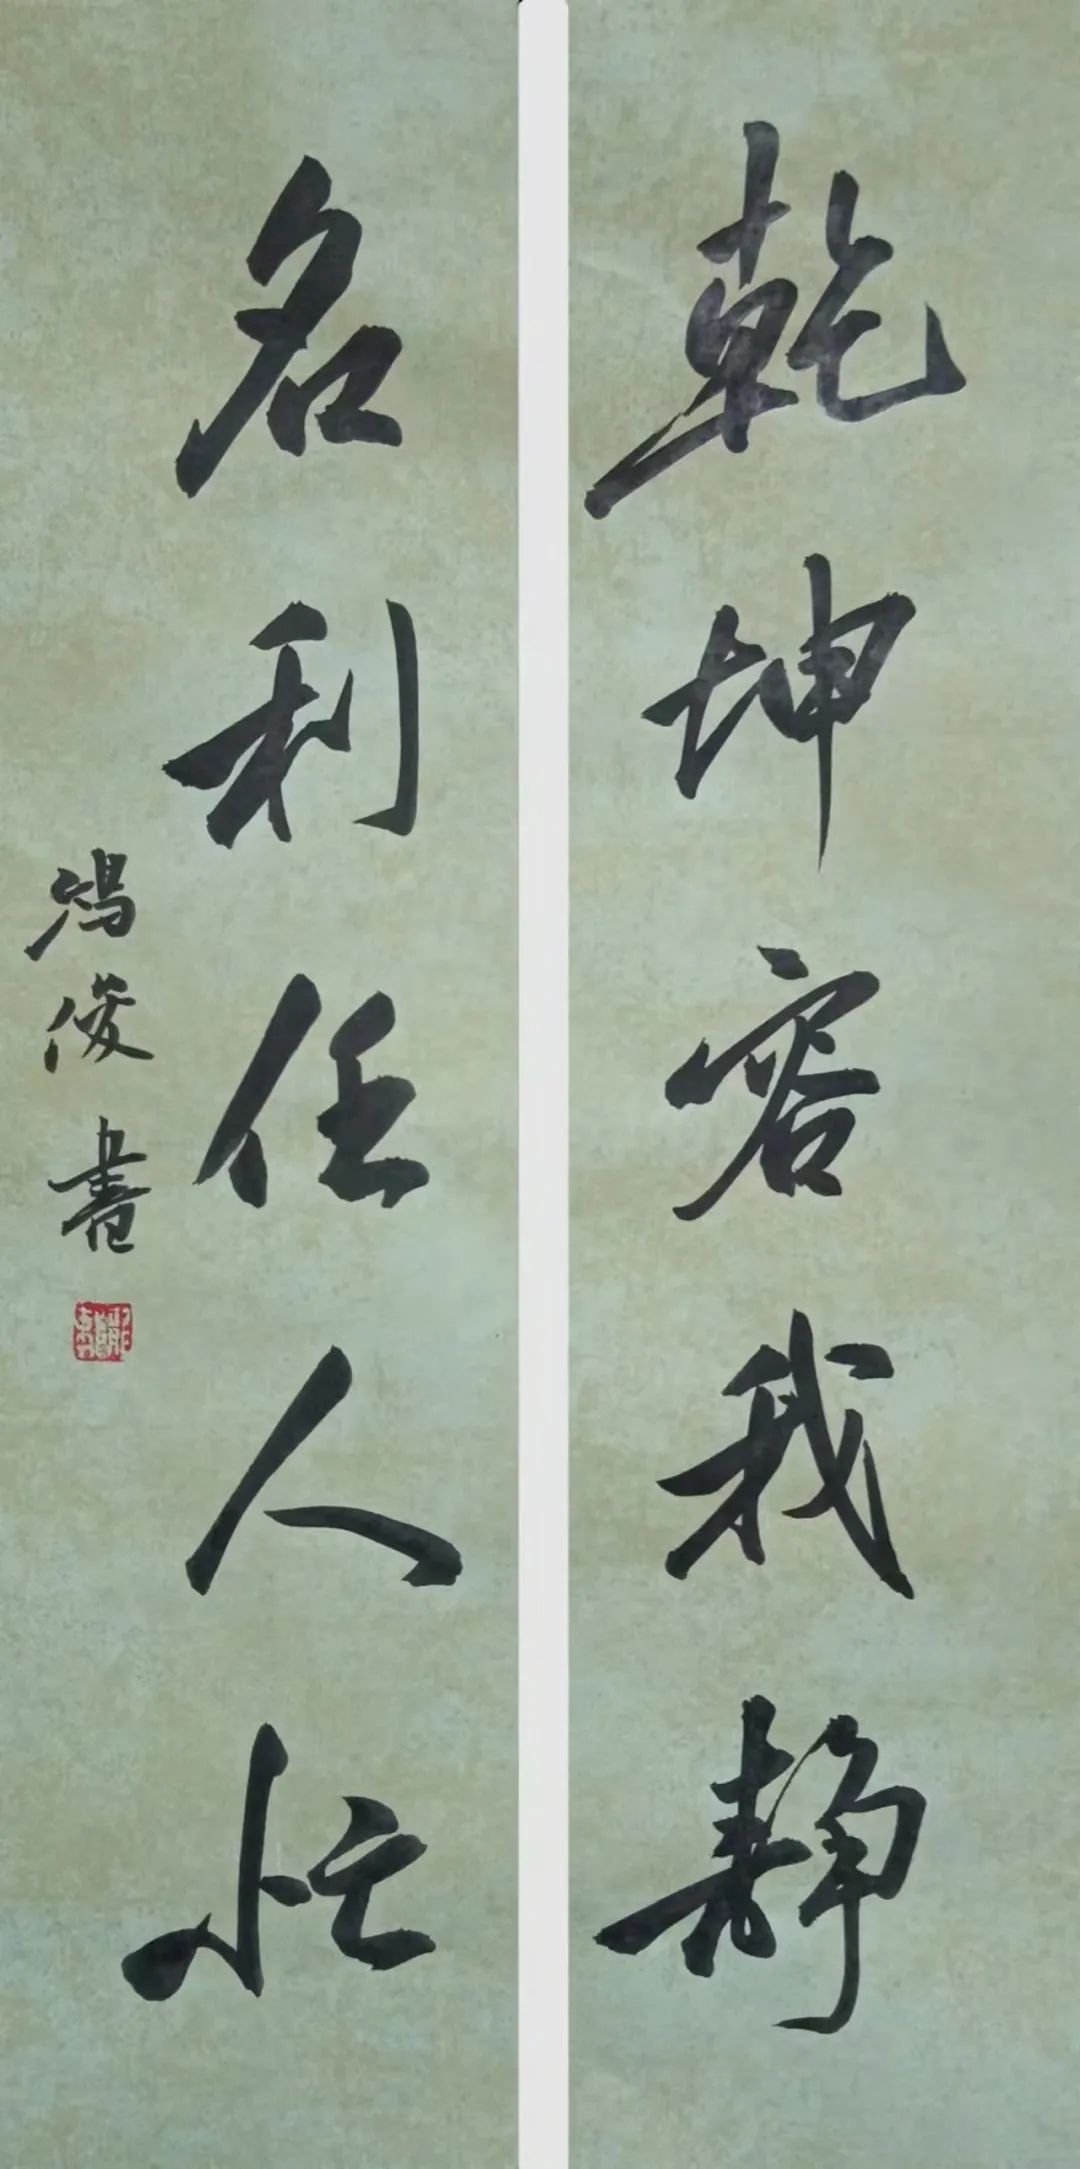 乾坤容我静
名利任人忙
鴻俊書